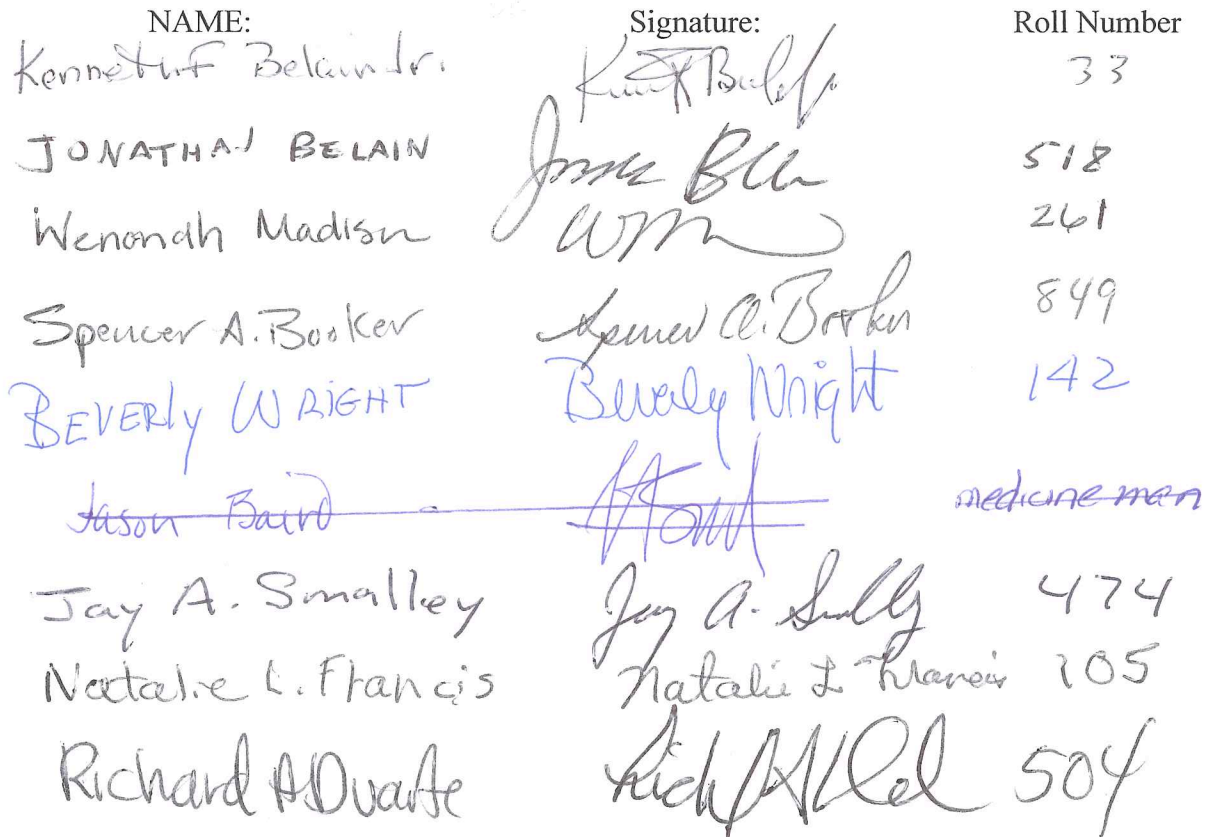 NAME: Signature: Roll Number
Kenneth F Belain Jr. 33
JONATHAN BELAIN 518
Wenonah Madison 261
Spencer A. Booker Spencer A. Booker 849
BEVERLY WRIGHT Beverly Wright 142
Jason Baird medicine man
Jay A. Smalley Jay A. Smalley 474
Natalie L. Francis Natalie L Francis 105
Richard A Duarte 504